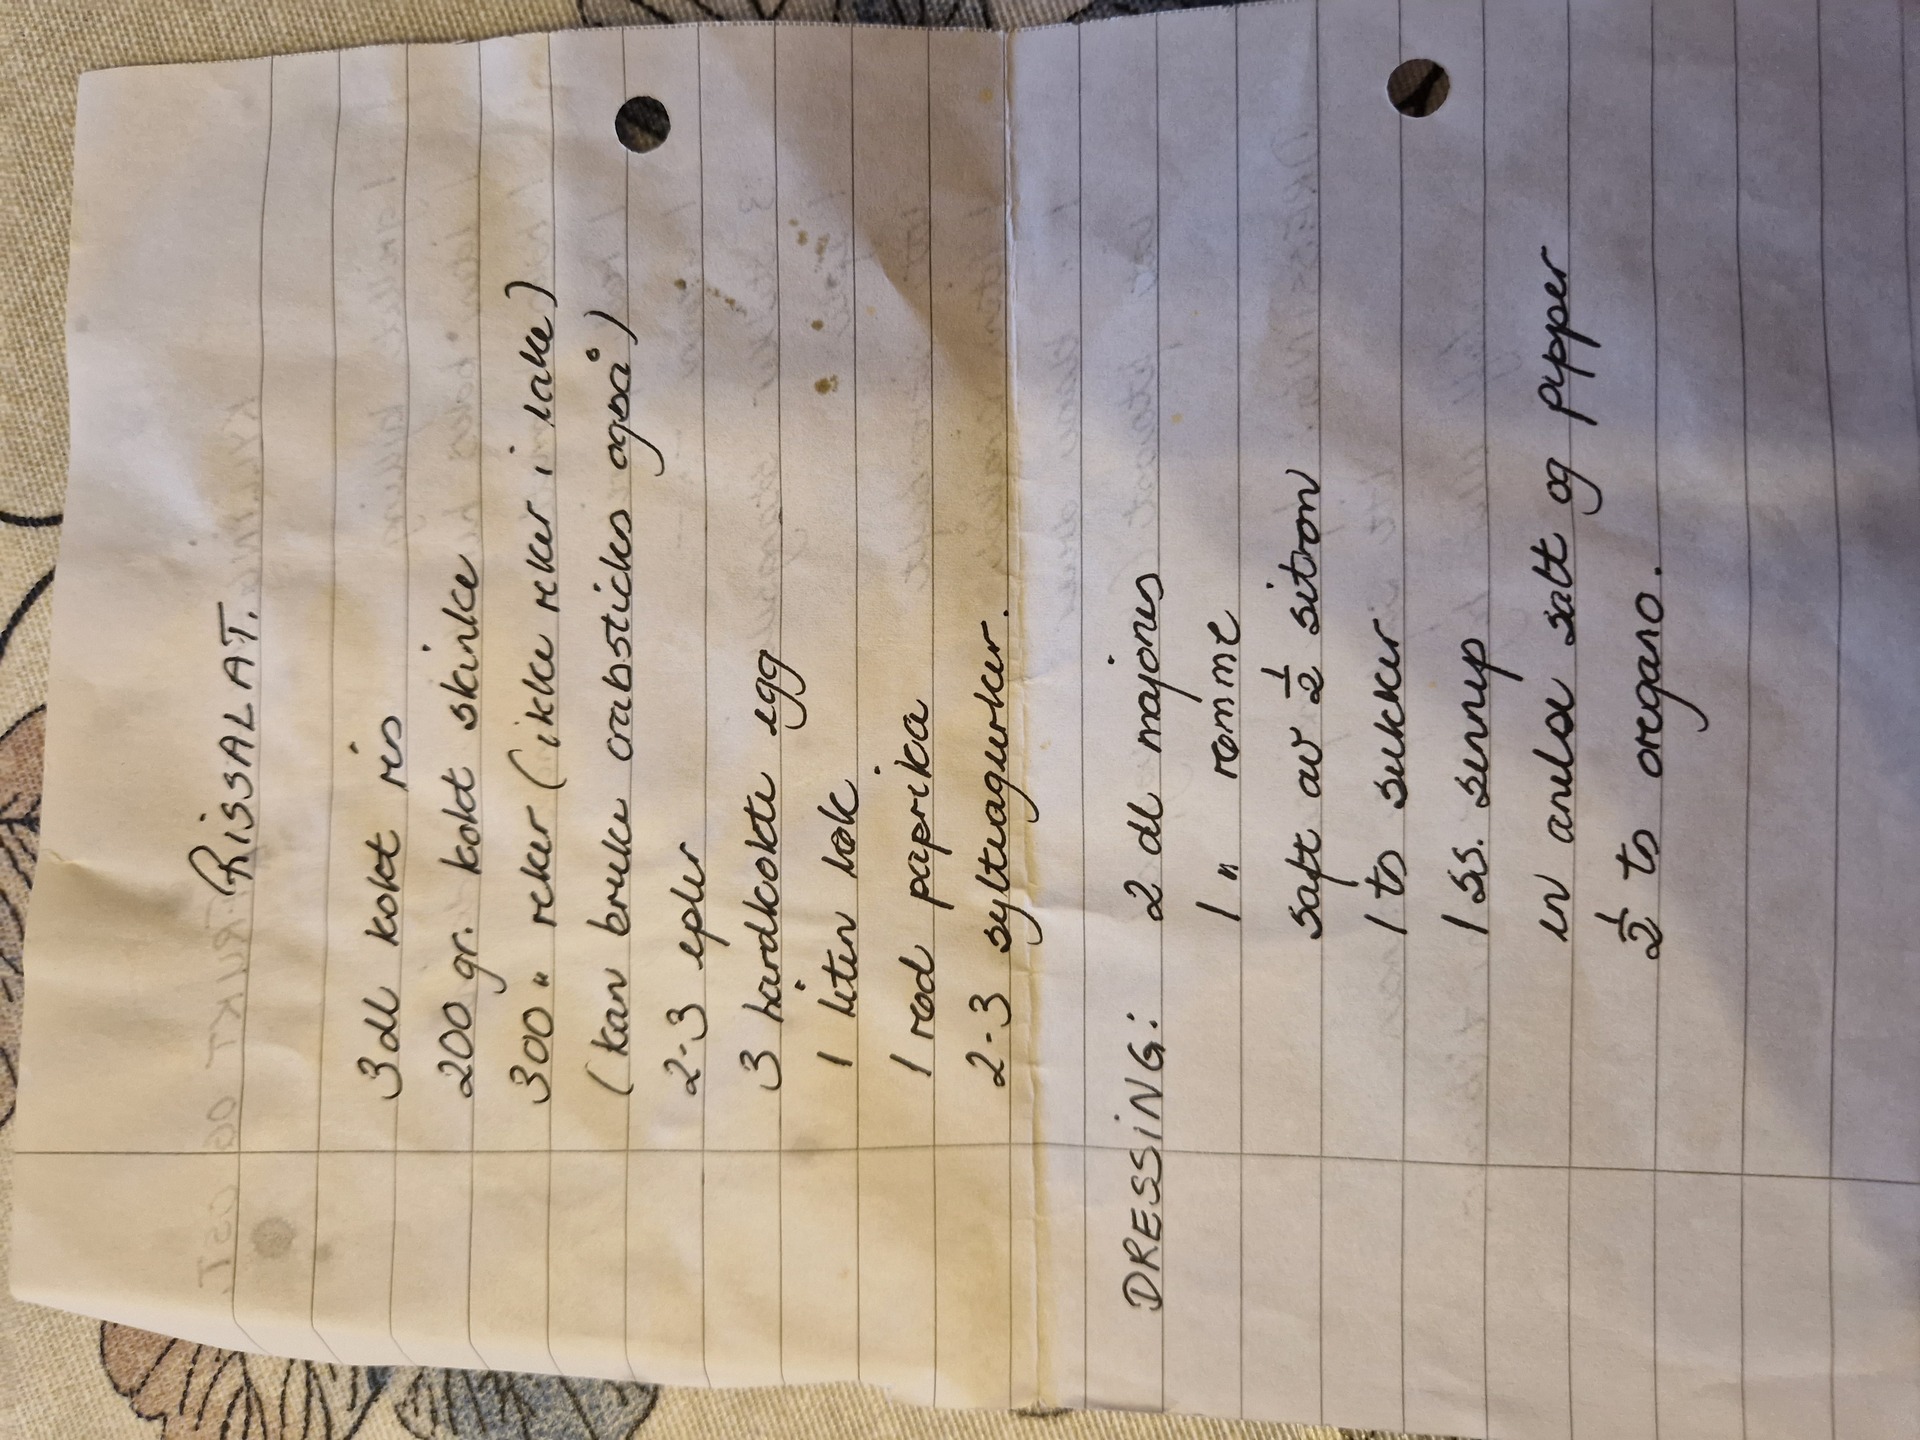 RISSALAT.
3 dl kokt ris
200 gr. kokt skinke
300 " reker (ikke reker i lake)
(kan bruke crabsticks også)
2-3 epler
3 hardkokte egg
1 liten løk
1 rød paprika
2-3 sylteagurker.
DRESSING: 2 dl majones
1 " rømme
saft av 1/2 sitron
1 ts sukker
1 ss. sennep
en anelse salt og pepper
1/2 ts oregano.